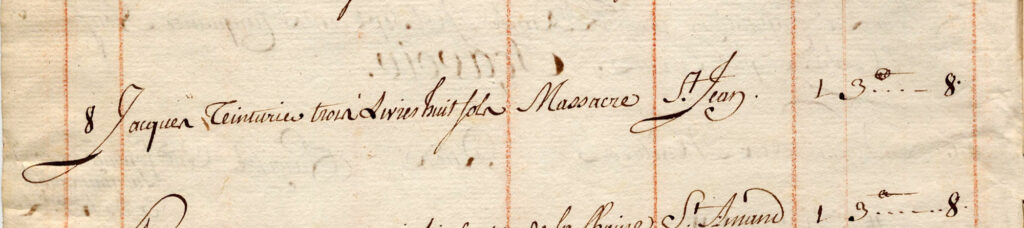 8 Jacques Teinturie trois Livres huit sols Massacre St. Jean. 1 3 8.
de la St. Amand 1 3 8.